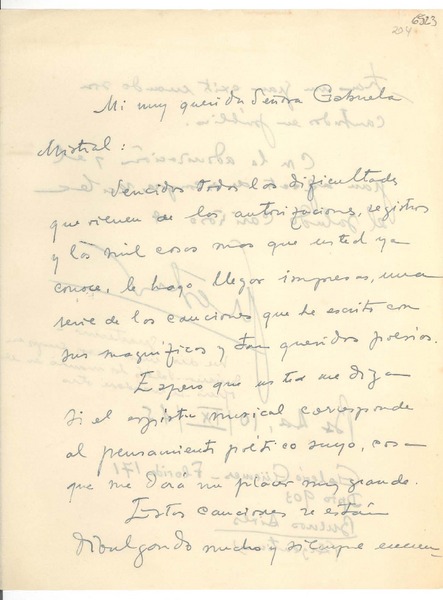 6523
204
Mi muy querida Señora Gabriela
Mistral:
Vencidas todas las dificultades
que vienen de las autorizaciones, registros
y las mil cosas mas que usted ya
conoce, le hago llegar impresas, una
serie de las canciones que he escrito con
sus magníficos y tan queridos poesias.
Espero que usted me diga
si el espiritu musical corresponde
al pensamiento poético suyo, cosa
que me dará un placer muy grande.
Estas canciones se están
divulgando mucho y siempre